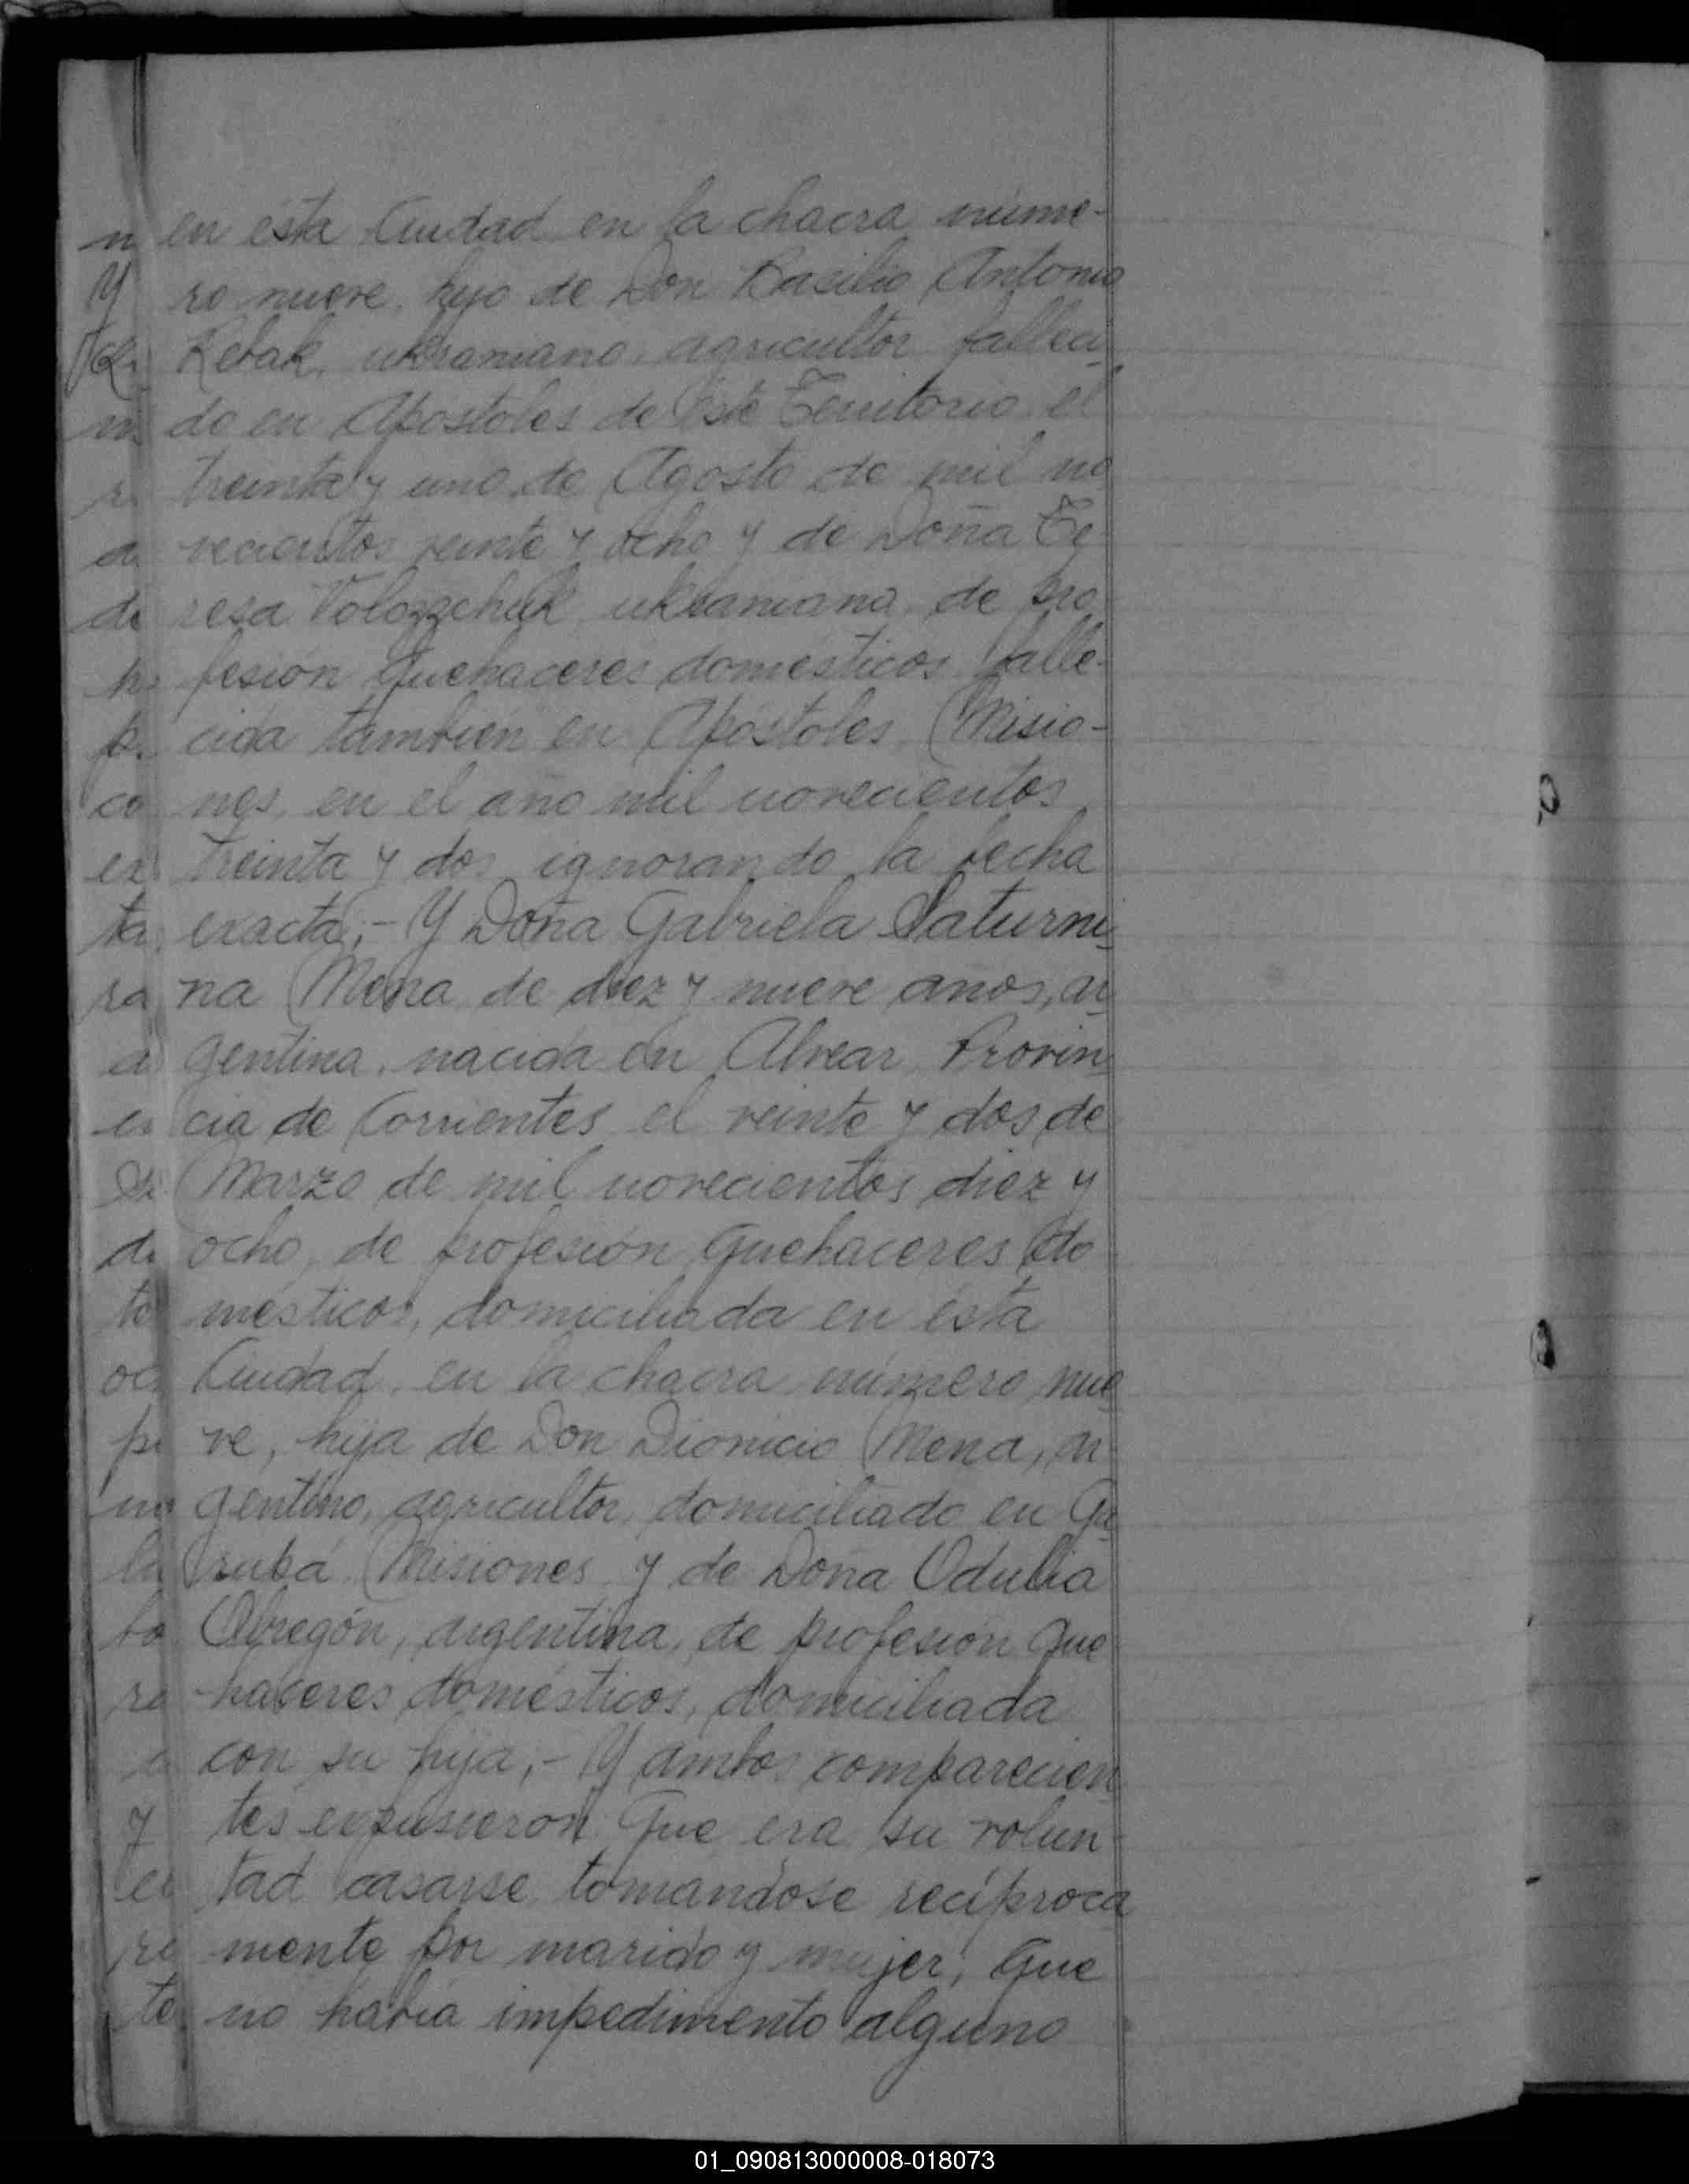 en ésta Ciudad en la chacra núme-
ro nueve, hijo de Don Basilio Antonio
Rebak, ukraniano, agricultor falleci
do en Apostoles de éste Territorio el
treinta y uno de Agosto de mil no
vecientos veinte y ocho y de Doña Te
resa Volozzchuk, ukraniana, de pro
fesión quehaceres domésticos falle-
cida tambien en Apóstoles, (Misio-
nes, en el año mil novecientos
treinta y dos ignorando la fecha
exacta;- Y Doña Gabriela Saturni
na Mena de diez y nueve años, ar
gentina, nacida en Alvear, Provin
cia de Corrientes el veinte y dos de
Marzo de mil novecientos diez y
ocho, de profesión quehaceres do
mésticos, domiciliada en ésta
Ciudad, en la chacra número nue
ve, hija de Don Dionicio Mena, ar
gentino, agricultor, domiciliado en Ga
rubá (Misiones y de Doña Odulia
Obregón, argentina, de profesión que
haceres domésticos, domiciliada
con su hija;- Y ambos comparecien
tes expusieron que era su volun
tad casarse tomandose recíproca
mente por marido y mujer, que
no había impedimento alguno
01_090813000008-018073